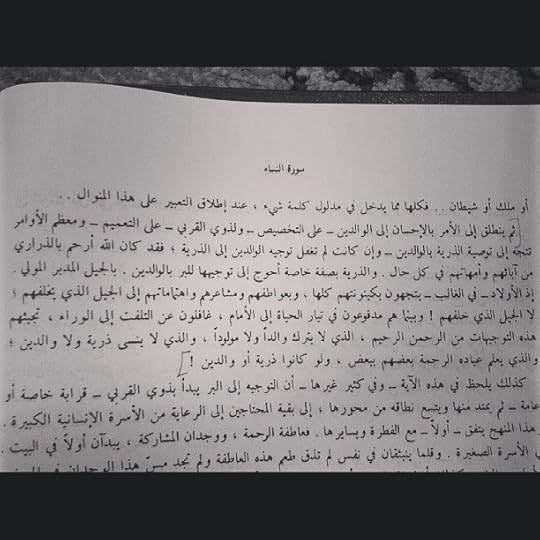 سورة النساء
أو ملك أو شيطان . . فكلها مما يدخل في مدلول كلمة شيء ، عند إطلاق التعبير على هذا المنوال . .
[ثم ينطلق إلى الأمر بالإحسان إلى الوالدين ــ على التخصيص ــ ولذوي القربى ــ على التعميم ــ ومعظم الأوامر
تتجه إلى توصية الذرية بالوالدين ــ وإن كانت لم تغفل توجيه الوالدين إلى الذرية ؛ فقد كان الله أرحم بالذراري
من آبائهم وأمهاتهم في كل حال . والذرية بصفة خاصة أحوج إلى توجيهها للبر بالوالدين . بالجيل المدبر المولي .
إذ الأولاد ــ في الغالب ــ يتجهون بكينونتهم كلها ، وبعواطفهم ومشاعرهم واهتماماتهم إلى الجيل الذي يخلفهم ؛
لا الجيل الذي خلفهم ! وبينما هم مدفوعون في تيار الحياة إلى الأمام ، غافلون عن التلفت إلى الوراء ، تجيئهم
هذه التوجيهات من الرحمن الرحيم ، الذي لا يترك والداً ولا مولوداً ، والذي لا ينسى ذرية ولا والدين ؛
والذي يعلم عباده الرحمة بعضهم ببعض ، ولو كانوا ذرية أو والدين !]
كذلك يلحظ في هذه الآية ــ وفي كثير غيرها ــ أن التوجيه إلى البر يبدأ بذوي القربى ــ قرابة خاصة أو
عامة ــ ثم يمتد منها ويتسع نطاقه من محورها ، إلى بقية المحتاجين إلى الرعاية من الأسرة الإنسانية الكبيرة .
هذا المنهج يتفق ــ أولاً ــ مع الفطرة ويسايرها . فعاطفة الرحمة ، ووجدان المشاركة ، يبدآن أولاً في البيت .
في الأسرة الصغيرة . وقلما ينبثقان في نفس لم تذق طعم هذه العاطفة ولم تجد مسّ هذا الوجدان في